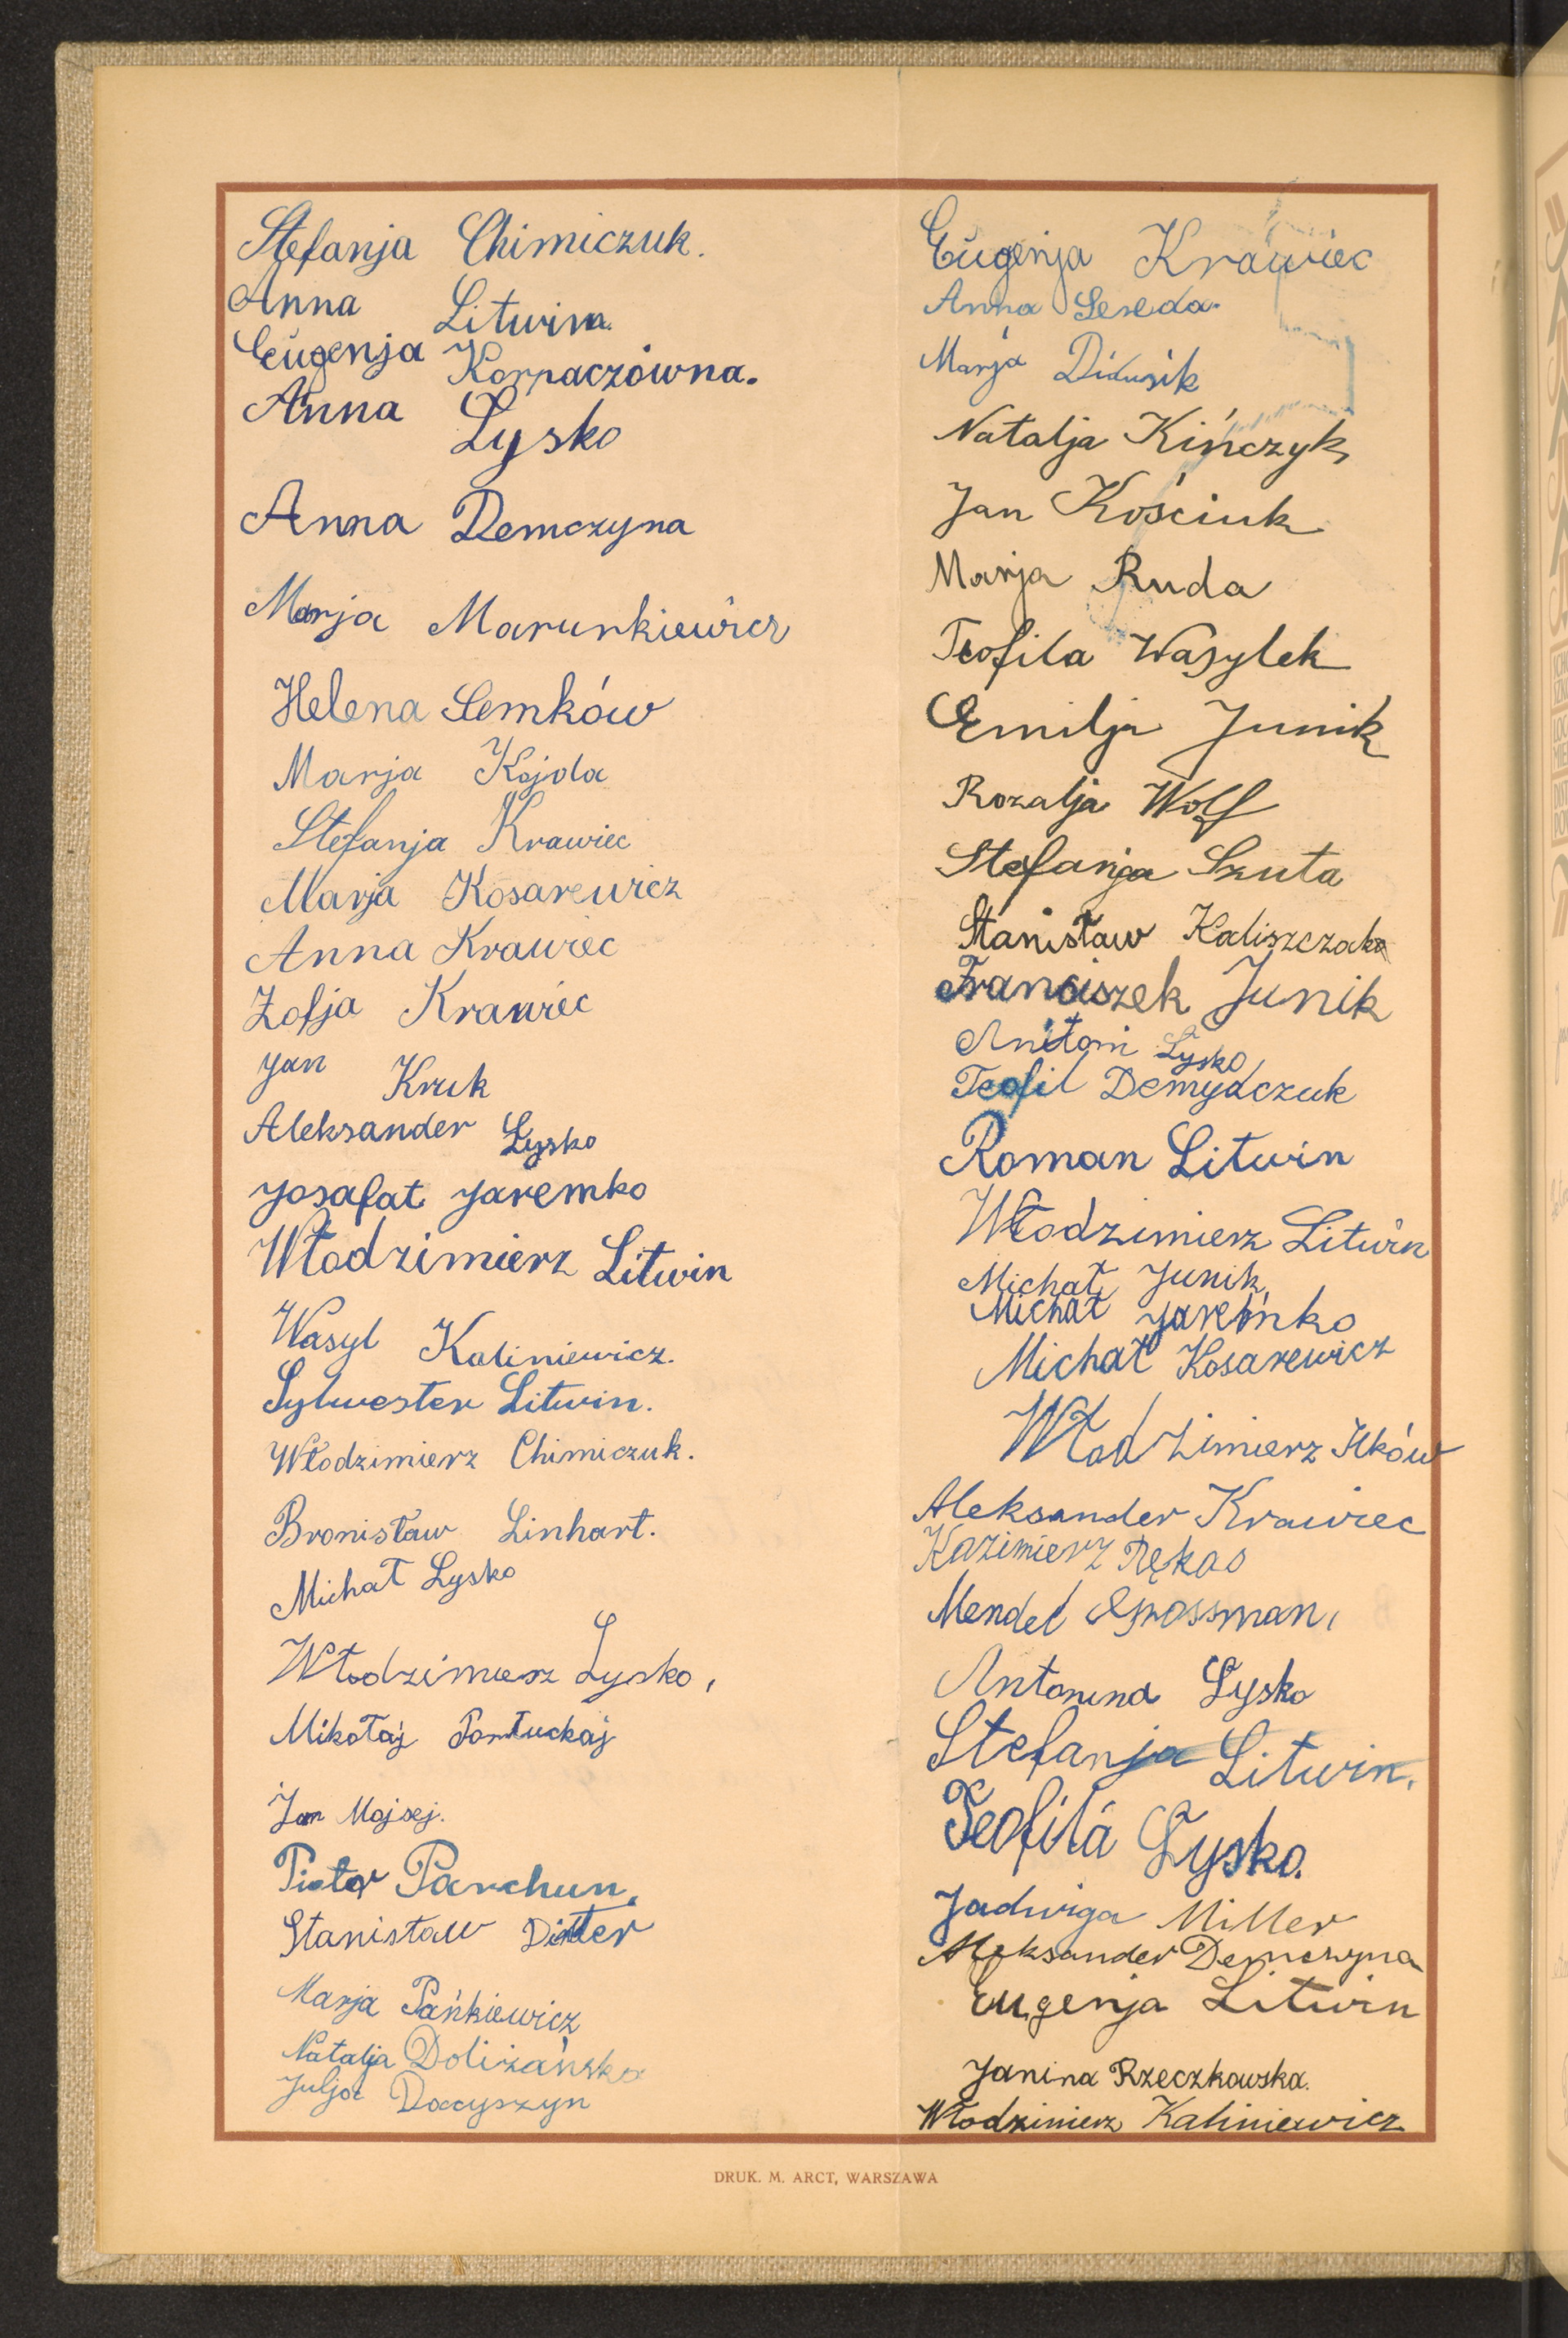 Stefanja Chimiczuk.
Anna Litwin.
Eugenja Korpaczówna.
Anna Łysko
Anna Demczyna
Marja Marunkiewicz
Helena Semków
Marja Kojda
Stefanja Krawiec
Marja Kosarewicz
Anna Krawiec
Zofja Krawiec
Jan Kruk
Aleksander Łysko
Josafat Jaremko
Włodzimierz Litwin
Wasyl Kaliniewicz.
Sylwester Litwin.
Włodzimierz Chimiczuk.
Bronisław Linhart.
Michał Łysko
Włodzimierz Łysko,
Mikołaj Pantuckaj
Jan Mojsej.
Piotr Parchun.
Stanisław
Marja Pańkiewicz
Natalja Doliżańska
Julja Dacyszyn
Eugenja Krawiec
Anna Sereda.
Marja Didusik
Natalja Kińczyk
Jan Kościuk
Marja Ruda
Teofila Wasylek
Emilja Junik
Rozalja Wolf
Stefanja Szuta
Stanisław Kaliszczak
Franciszek Junik
Antoni Łysko
Teofil Demydczuk
Roman Litwin
Włodzimierz Litwin
Michał Junik
Michał Jaremko
Michał Kosarewicz
Włodzimierz Ilków
Aleksander Krawiec
Kazimierz Rękas
Mendel Grossman,
Antonina Łysko
Stefanja Litwin.
Teofila Łysko.
Jadwiga Miller
Aleksander Demczyna
Eugenja Litwin
Janina Rzeczkowska.
Włodzimierz Kaliniewicz
DRUK. M. ARCT, WARSZAWA